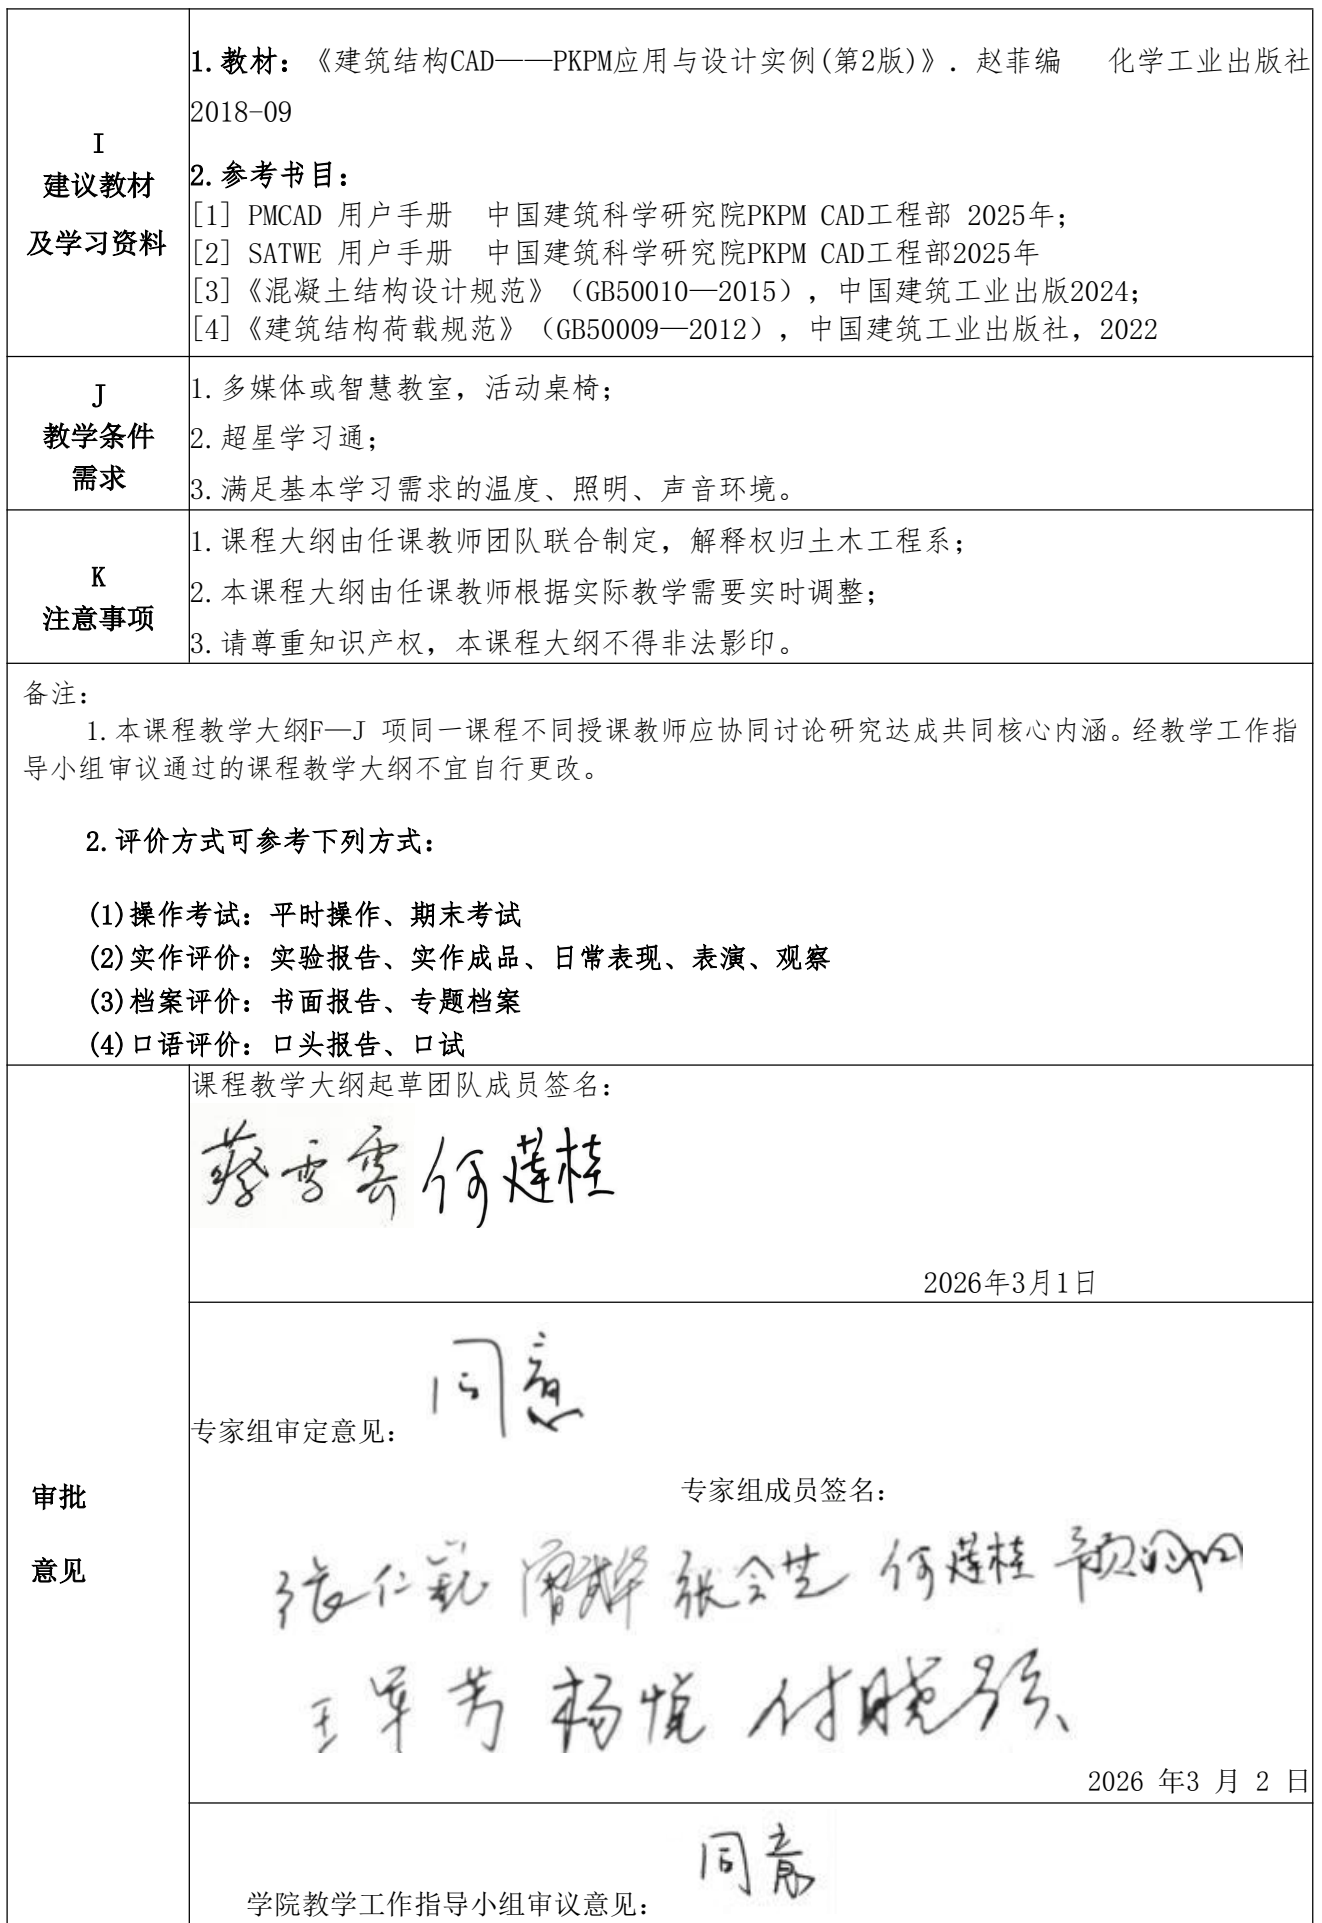 I
建议教材
及学习资料
1.教材：《建筑结构CAD——PKPM应用与设计实例(第2版)》. 赵菲编 化学工业出版社
2018-09
2.参考书目：
[1] PMCAD 用户手册 中国建筑科学研究院PKPM CAD工程部 2025年；
[2] SATWE 用户手册 中国建筑科学研究院PKPM CAD工程部2025年
[3]《混凝土结构设计规范》（GB50010—2015），中国建筑工业出版2024；
[4]《建筑结构荷载规范》（GB50009—2012），中国建筑工业出版社，2022
J
教学条件
需求
1.多媒体或智慧教室，活动桌椅；
2.超星学习通；
3.满足基本学习需求的温度、照明、声音环境。
K
注意事项
1.课程大纲由任课教师团队联合制定，解释权归土木工程系；
2.本课程大纲由任课教师根据实际教学需要实时调整；
3.请尊重知识产权，本课程大纲不得非法影印。
备注：
1.本课程教学大纲F—J 项同一课程不同授课教师应协同讨论研究达成共同核心内涵。经教学工作指
导小组审议通过的课程教学大纲不宜自行更改。
2.评价方式可参考下列方式：
(1)操作考试：平时操作、期末考试
(2)实作评价：实验报告、实作成品、日常表现、表演、观察
(3)档案评价：书面报告、专题档案
(4)口语评价：口头报告、口试
审批
意见
课程教学大纲起草团队成员签名：
蔡雪雲 何莲桂
2026年3月1日
同意
专家组审定意见：
专家组成员签名：
张仁巍 张会芝 何莲桂
王军芳 杨悦 付晓强
2026 年3 月 2 日
同意
学院教学工作指导小组审议意见：